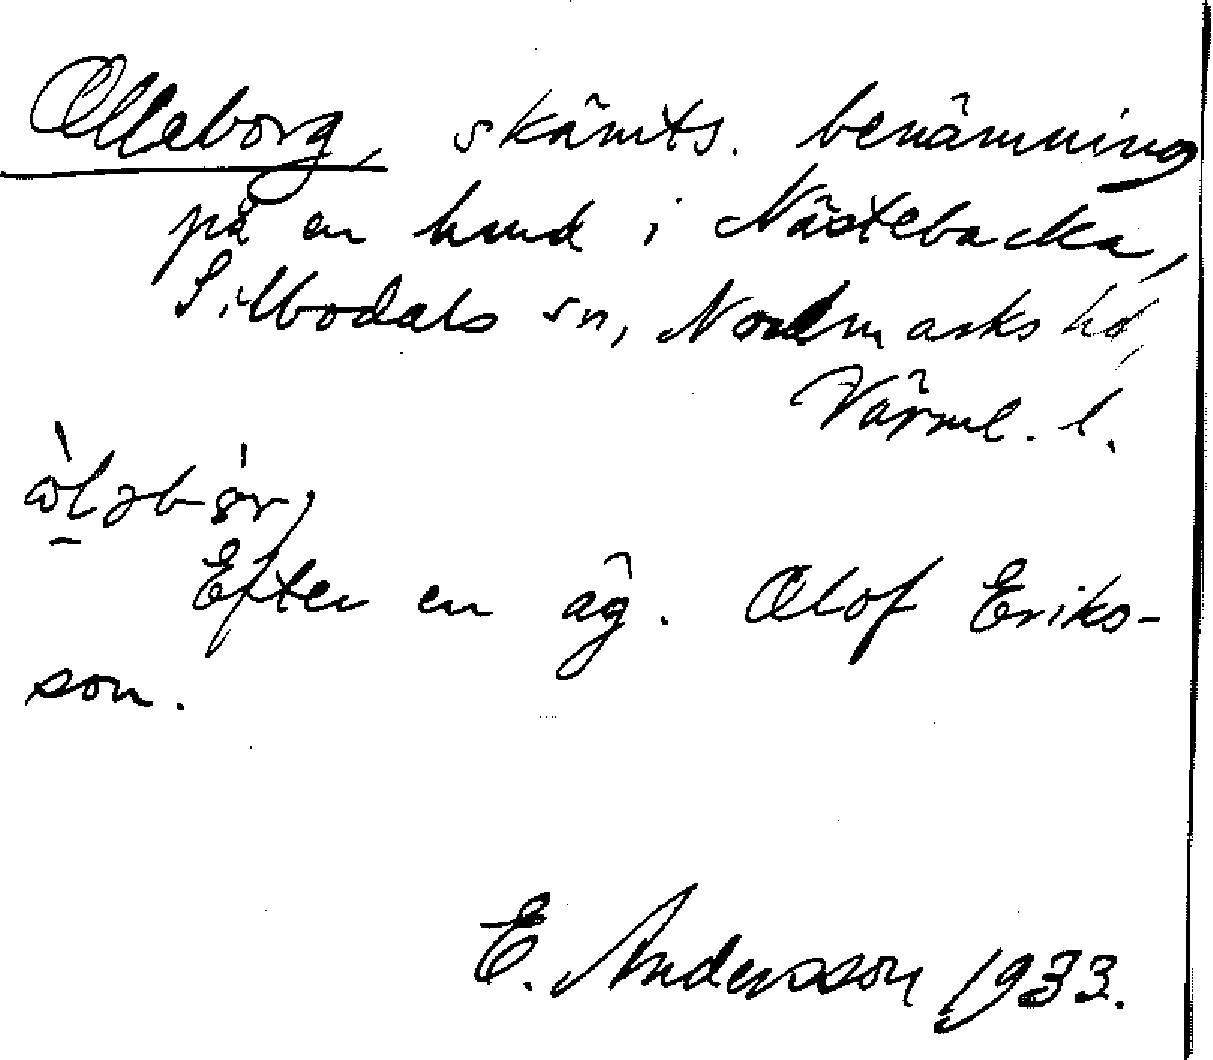 Olleborg, skämts. benämning
på en hund i Nästebacka,
Silbodals sn, Nordmarks hd,
Värml. l.
Efter en äg. Olof Eriks-
son.
E. Andersson 1933.